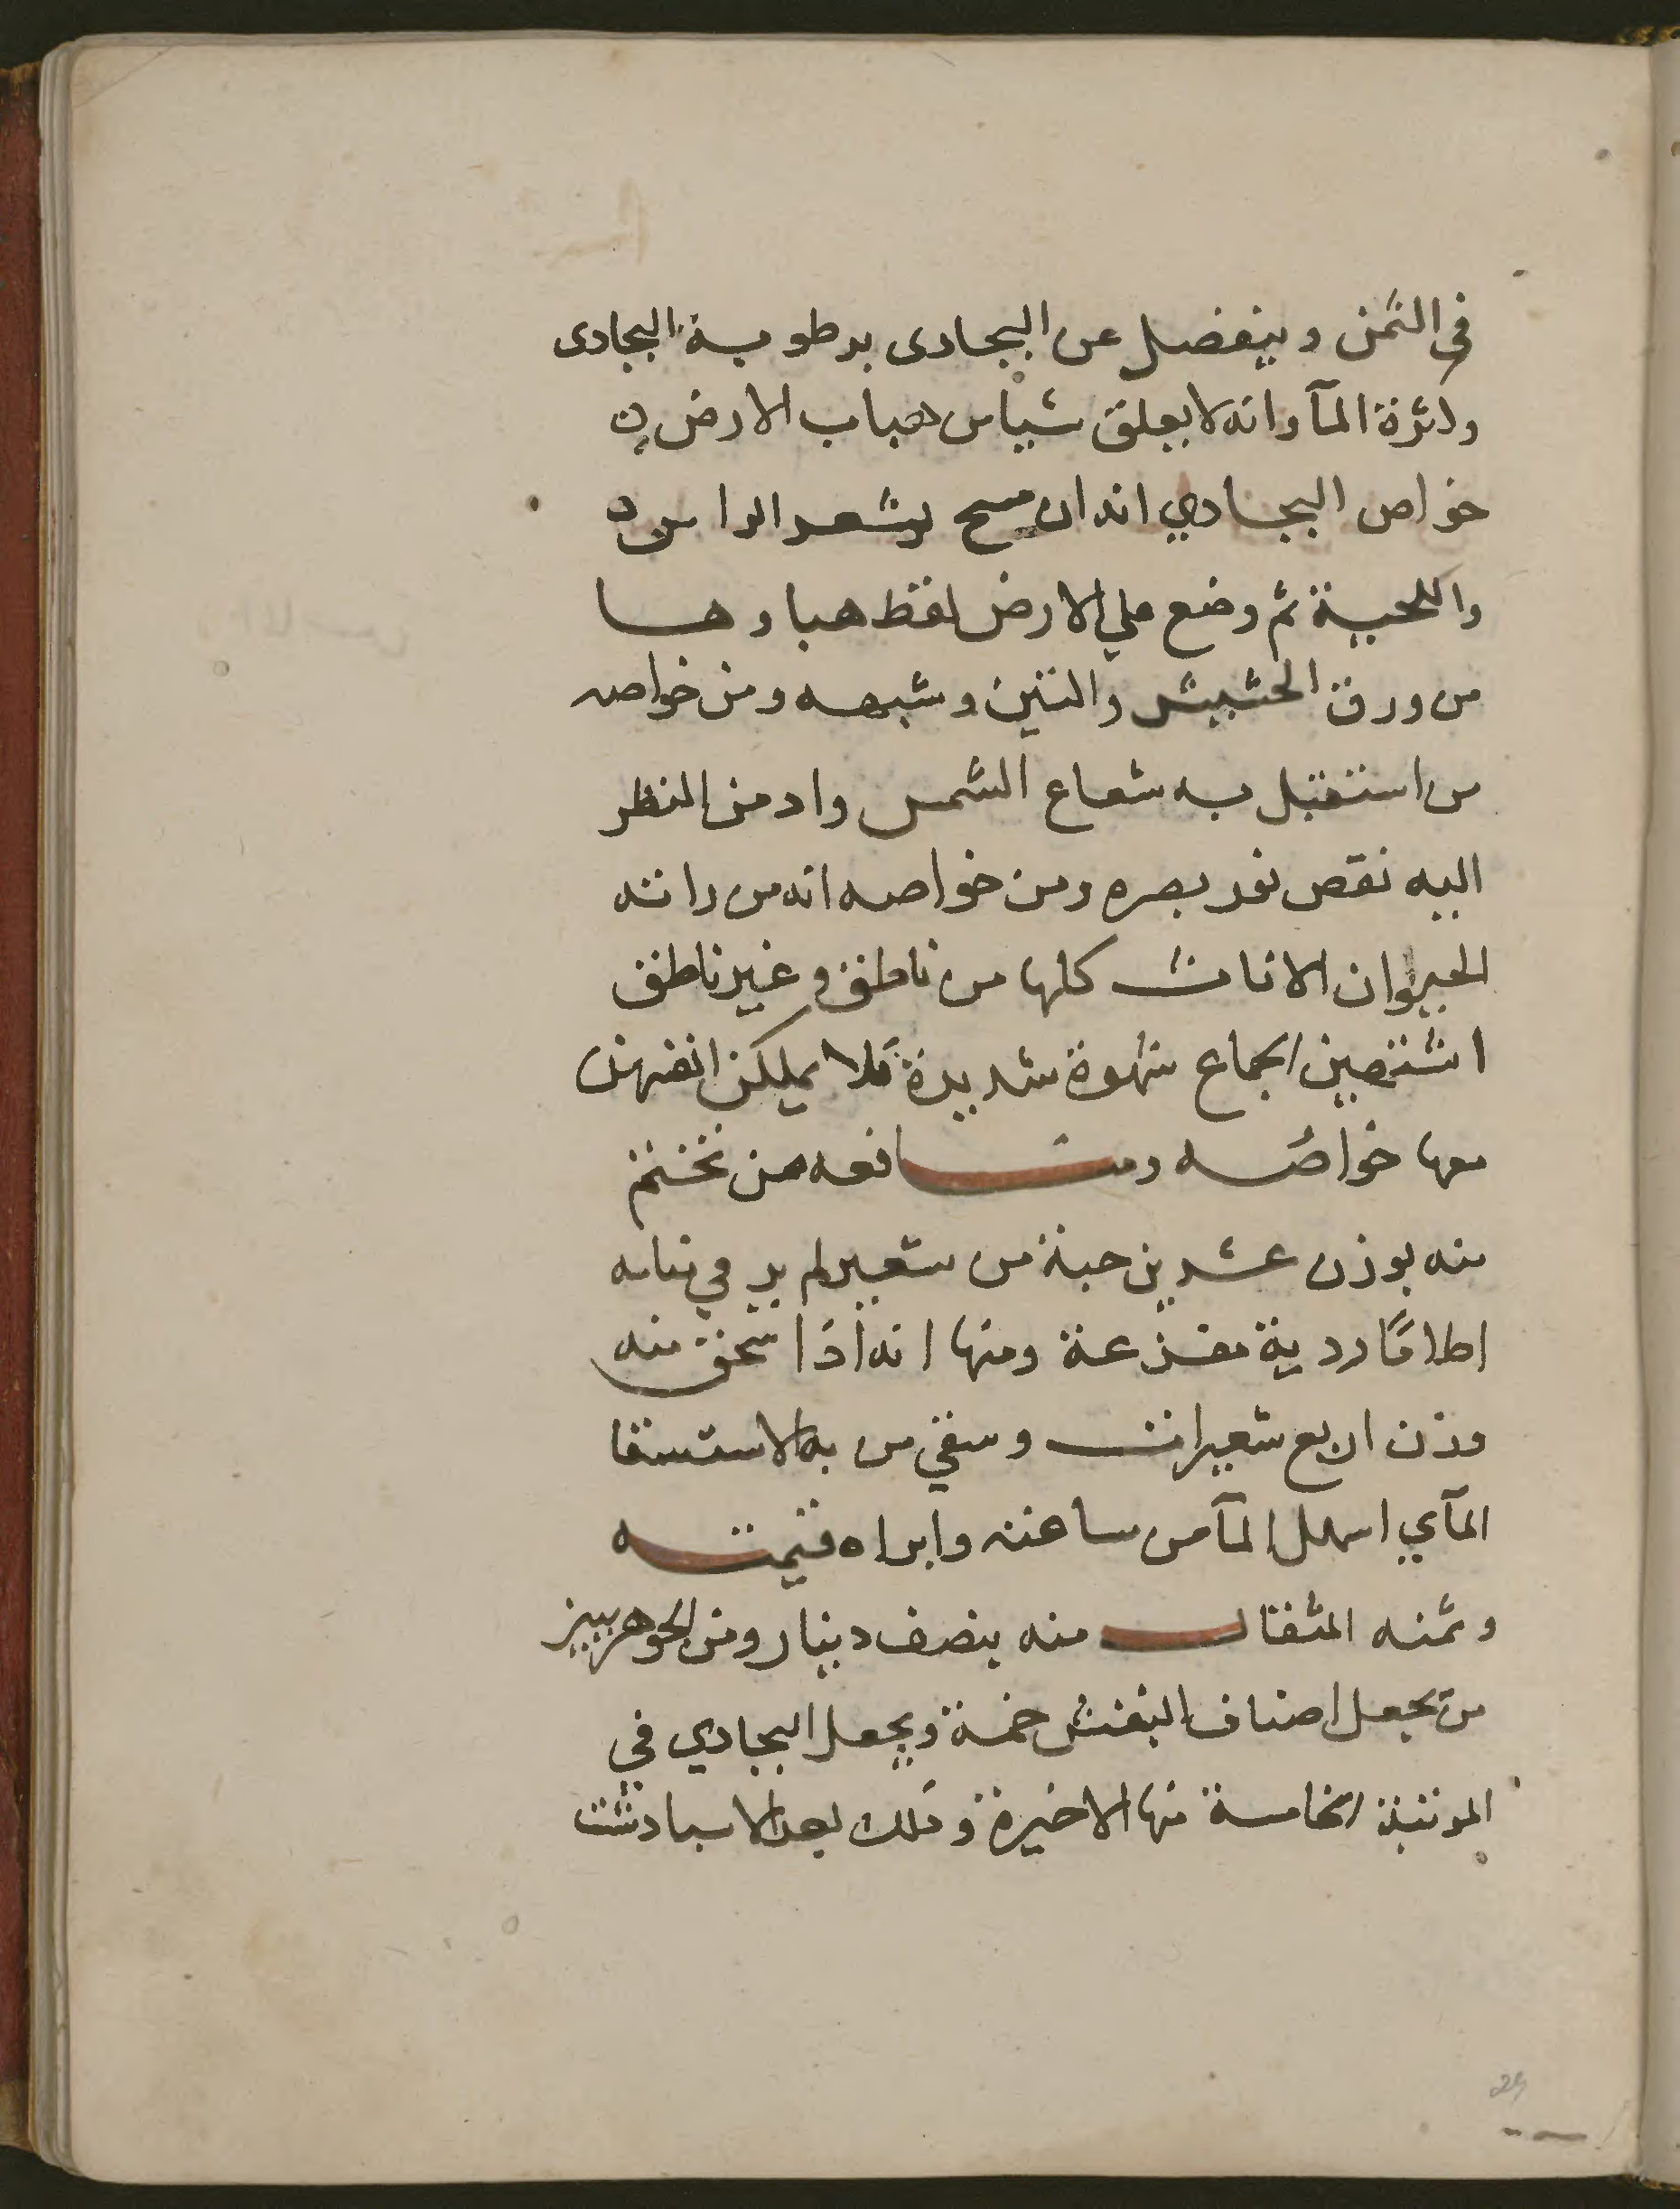 في الثمن وينفضل عن البجادى برطوبة البجادى
وكثرة المآ وانه لا يعلق شيا من هباب الارض
خواص البجادي انه ان مسح بشعر الراس
واللحية ثم وضع علي الارض لقط هباوها
من ورق الحشيش والتبن وشبهه ومن خواصه
من استقبل به شعاع الشمس وادمن النظر
اليه نقص نور بصره ومن خواصه انه من راته
الحيوان الاناث كلها من ناطق وغير ناطق
اشتهين الجماع شهوة شديدة فلا يملكن انفسهن
معها خواصه ومنافعه من تختم
منه بوزن عشرين حبة من شعير لم ير في منامه
احلامًا ردية مفزعة ومنها انه اذا سحق منه
وزن اربع شعيرات وسقي من به الاستسقا
المآي اسهل المآ من ساعته وابراه قيمته
وثمنه المثقال منه بنصف دينار ومن الجوهريين
من يجعل اصناف البنفش خمسة ويجعل البجادي في
المرتبة الخامسة منها الاخيرة وذلك بعد الاسبادشت